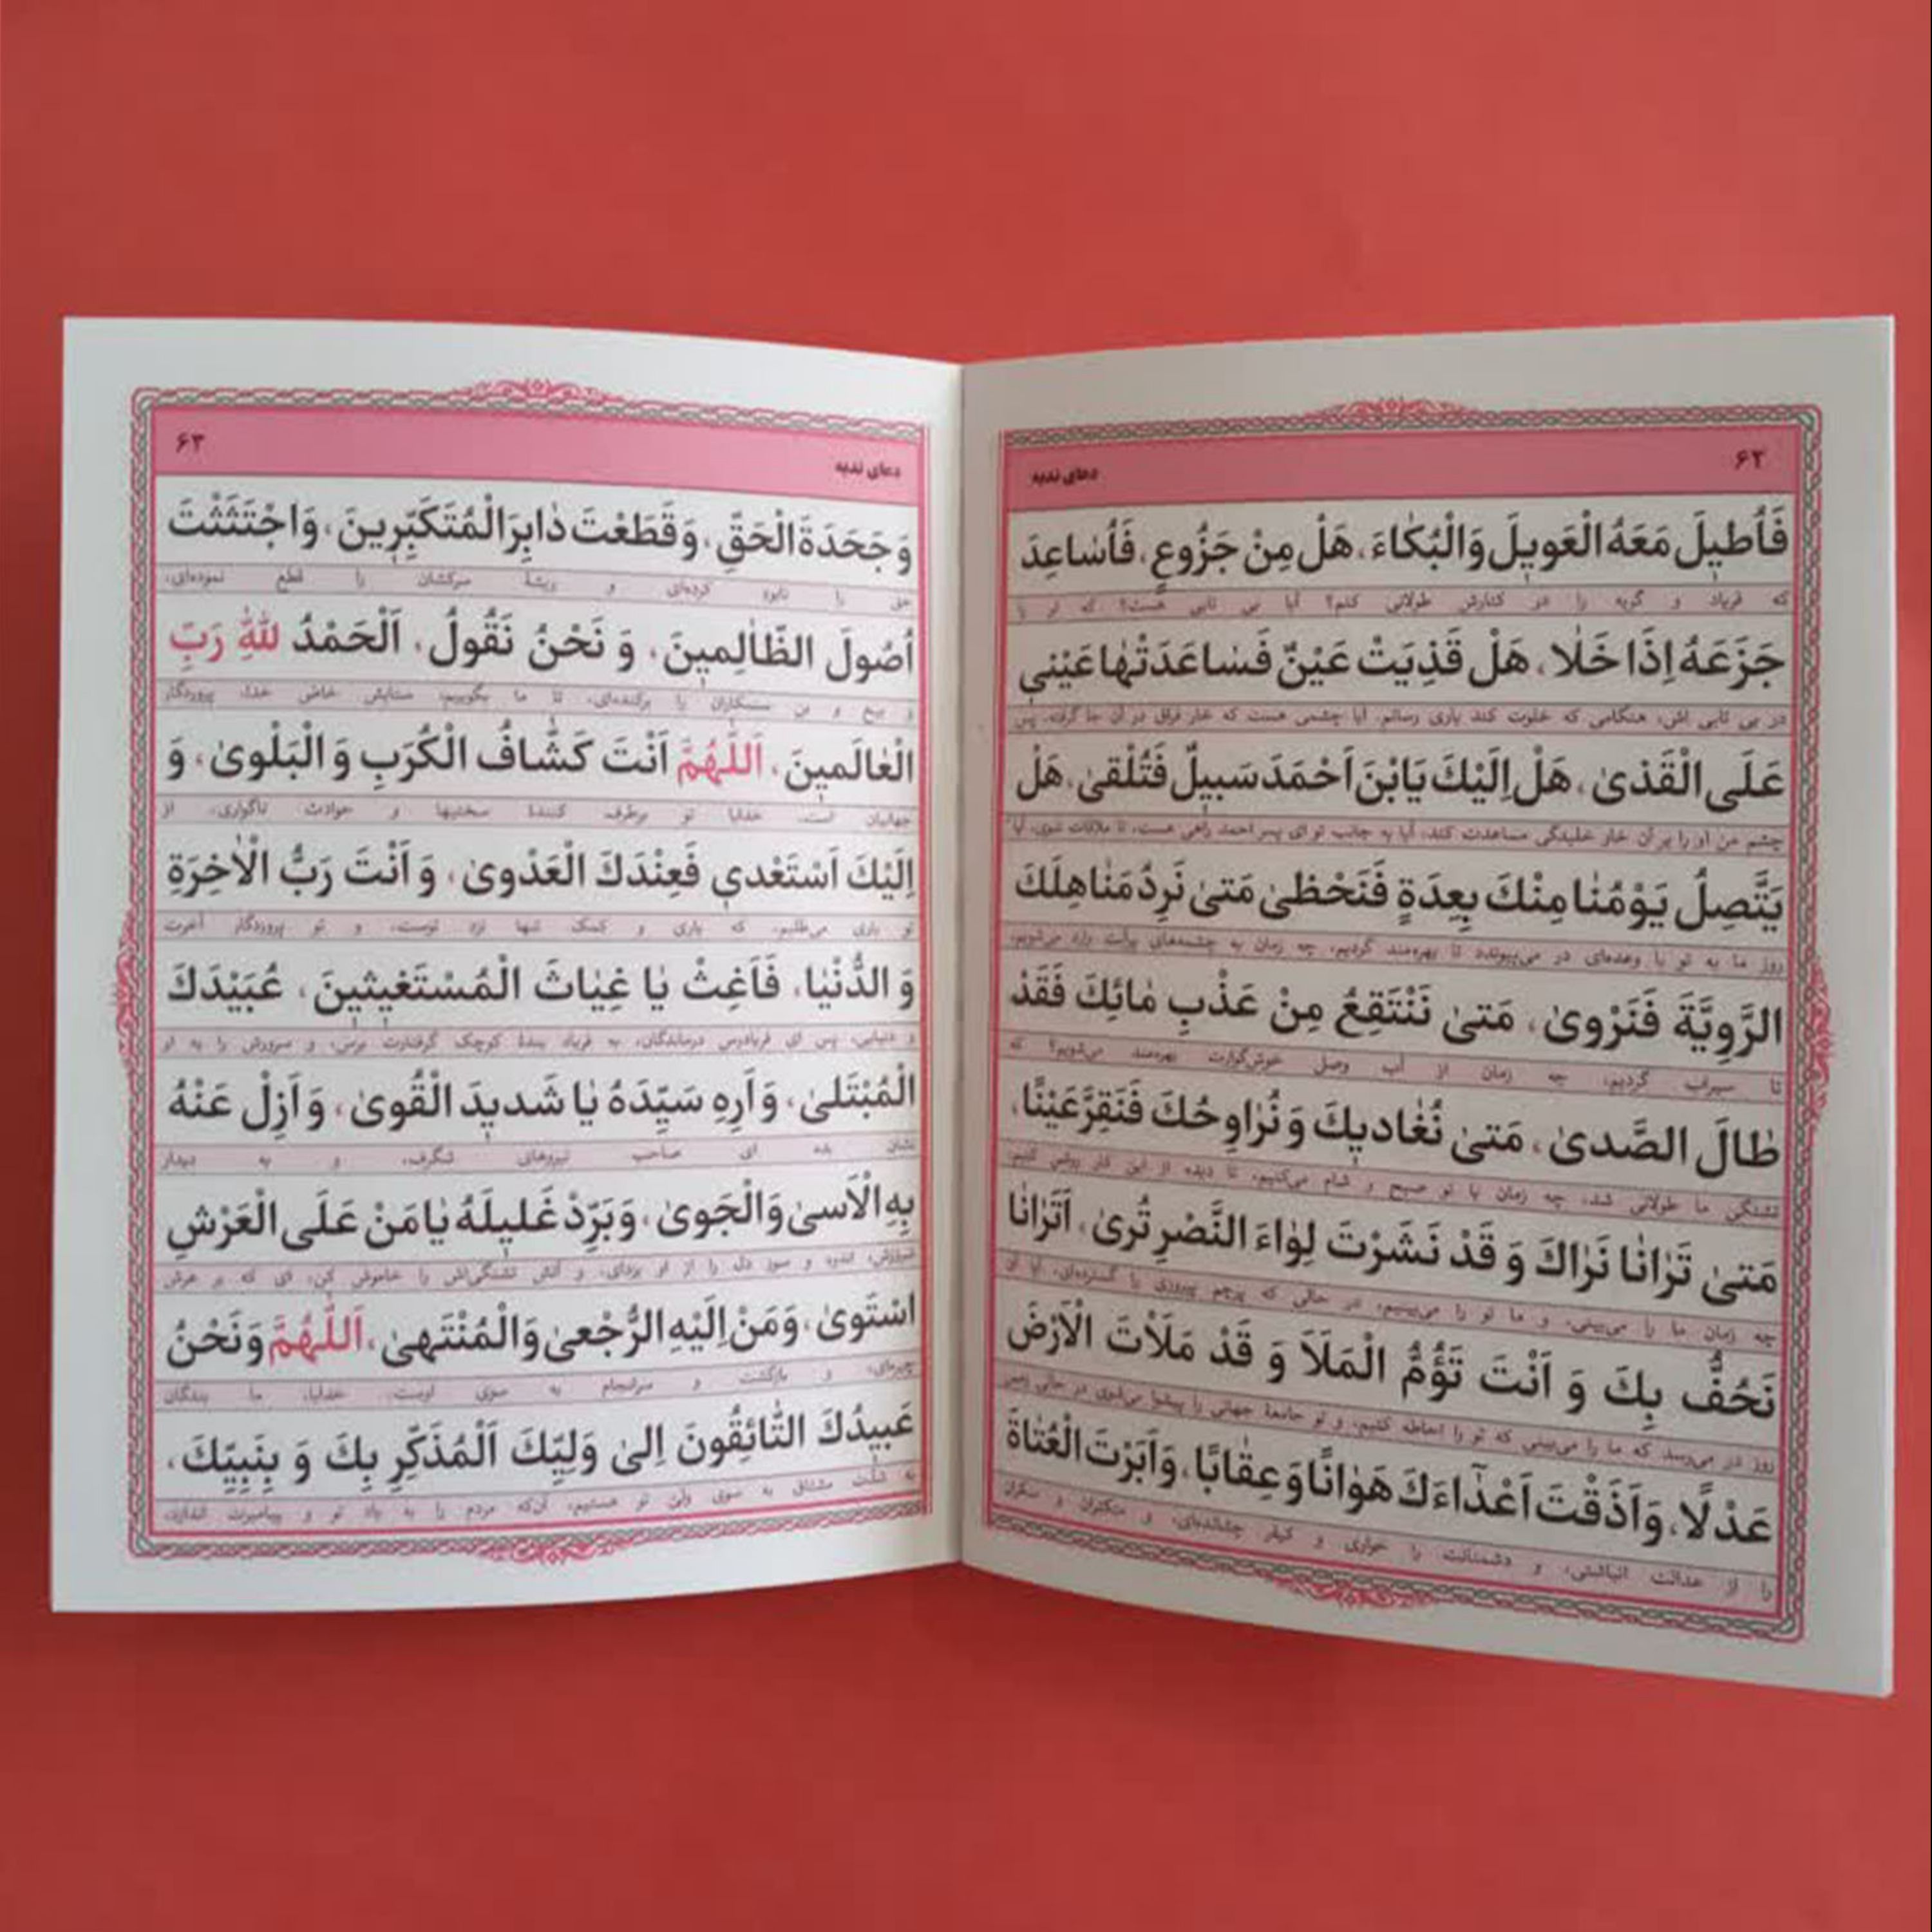 ۶۲
دعای ندبه
فَاُطیلَ مَعَهُ الْعَویلَ وَالْبُکٰاءَ، هَلْ مِنْ جَزُوعٍ، فَاُسٰاعِدَ
که فریاد و گریه را در کنارش طولانی کنم؟ آیا بی تابی هست؟ که او را
جَزَعَهُ اِذَا خَلٰا، هَلْ قَذِیَتْ عَیْنٌ فَسٰاعَدَتْهٰا عَیْنی
در بی تابی اش، هنگامی که خلوت کند یاری رسانم. آیا چشمی هست که خار فراق در آن جا گرفته، پس
عَلَی الْقَذیٰ، هَلْ اِلَیْكَ یَابْنَ اَحْمَدَ سَبیلٌ فَتُلْقیٰ، هَلْ
چشم من او را بر آن خار خلیدگی مساعدت کند، آیا به جانب تو ای پسر احمد راهی هست، تا ملاقات شوی، آیا
یَتَّصِلُ یَوْمُنٰا مِنْكَ بِعِدَةٍ فَنَحْظیٰ مَتیٰ نَرِدُ مَنٰاهِلَكَ
روز ما به تو با وعده‌ای در می‌پیوندد تا بهره‌مند گردیم، چه زمان به چشمه‌های پرآبت وارد می‌شویم،
الرَّوِیَّةَ فَنَرْویٰ، مَتیٰ نَنْتَقِعُ مِنْ عَذْبِ مٰائِكَ فَقَدْ
تا سیراب گردیم، چه زمان از آب وصل خوش‌گوارت بهره‌مند می‌شویم؟ که
طٰالَ الصَّدیٰ، مَتیٰ نُغٰادیكَ وَ نُرٰاوِحُكَ فَنَقِرَّ عَیْنًا،
تشنگی ما طولانی شد، چه زمان با تو صبح و شام می‌کنیم، تا دیده از این کار روشن کنیم،
مَتیٰ تَرٰانٰا نَرٰاكَ وَ قَدْ نَشَرْتَ لِوٰاءَ النَّصْرِ تُریٰ، اَتَرٰانٰا
چه زمان ما را می‌بینی، و ما تو را می‌بینیم، در حالی که پرچم پیروزی را گسترده‌ای، آیا آن
نَحُفُّ بِكَ وَ اَنْتَ تَؤُمُّ الْمَلَاَ وَ قَدْ مَلَاْتَ الْاَرْضَ
روز در می‌رسد که ما را می‌بینی که تو را احاطه کنیم، و تو جامعهٔ جهانی را پیشوا می‌شوی در حالی زمین
عَدْلًا، وَ اَذَقْتَ اَعْدٰاءَكَ هَوٰانًا وَ عِقٰابًا، وَ اَبَرْتَ الْعُتٰاةَ
را از عدالت انباشتی، و دشمنانت را خواری و کیفر چشانده‌ای، و متکبران و منکران
۶۳
دعای ندبه
وَ جَحَدَةَ الْحَقِّ، وَ قَطَعْتَ دٰابِرَ الْمُتَکَبِّرینَ، وَ اجْتَثَثْتَ
حق را نابود کرده‌ای و ریشهٔ سرکشان را قطع نموده‌ای،
اُصُولَ الظّٰالِمینَ، وَ نَحْنُ نَقُولُ، اَلْحَمْدُ لِلّٰهِ رَبِّ
و بیخ و بن ستمکاران را برکنده‌ای، تا ما بگوییم: ستایش خاص خدا، پروردگار
الْعٰالَمینَ، اَللّٰهُمَّ اَنْتَ کَشّٰافُ الْکُرَبِ وَ الْبَلْویٰ، وَ
جهانیان است، خدایا تو برطرف کنندهٔ سختیها و حوادث ناگواری، از
اِلَیْكَ اَسْتَعْدی فَعِنْدَكَ الْعَدْویٰ، وَ اَنْتَ رَبُّ الْاٰخِرَةِ
تو یاری می‌طلبم، که یاری و کمک تنها نزد توست، و تو پروردگار آخرت
وَ الدُّنْیٰا، فَاَغِثْ یٰا غِیٰاثَ الْمُسْتَغیثینَ، عُبَیْدَكَ
و دنیایی، پس ای فریادرس درماندگان، به فریاد بندهٔ کوچک گرفتارت برس، و سرورش را به او
الْمُبْتَلیٰ، وَ اَرِهِ سَیِّدَهُ یٰا شَدیدَ الْقُویٰ، وَ اَزِلْ عَنْهُ
نشان بده ای صاحب نیروهای شگرف، و به دیدار
بِهِ الْاَسیٰ وَالْجَویٰ، وَ بَرِّدْ غَلیلَهُ یٰا مَنْ عَلَی الْعَرْشِ
سرورش، اندوه و سوز دل را از او بزدای، و آتش تشنگی‌اش را خاموش کن، ای که بر عرش
اسْتَویٰ، وَ مَنْ اِلَیْهِ الرُّجْعیٰ وَالْمُنْتَهیٰ، اَللّٰهُمَّ وَ نَحْنُ
چیره‌ای، و بازگشت و سرانجام به سوی اوست. خدایا، ما بندگان
عَبیدُكَ التّٰائِقُونَ اِلیٰ وَلِیِّكَ اَلْمُذَکِّرِ بِكَ وَ بِنَبِیِّكَ،
به شدّت مشتاق به سوی ولیّ تو هستیم، آن‌که مردم را به یاد تو و پیامبرت اندازد،